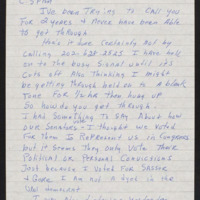 C Span
I've been Trying to Call you
For 2 years & Never have been Able
To get through
Have it done Certainly Not by
Calling 202-628 2821 I have talk
on to the busy Signal until its
Cuts off Also Thinking I might
be getting through hold on to a blank
Tone For hours then hung up
So how do you get through -
I had Something To Say About how
our Senators I thought we Voted
For Them To Represent us in Congress
but it seems They Only Vote Their
Political or Personal Convictions
Just because I Voted For Sasser
& Gore I Am not A